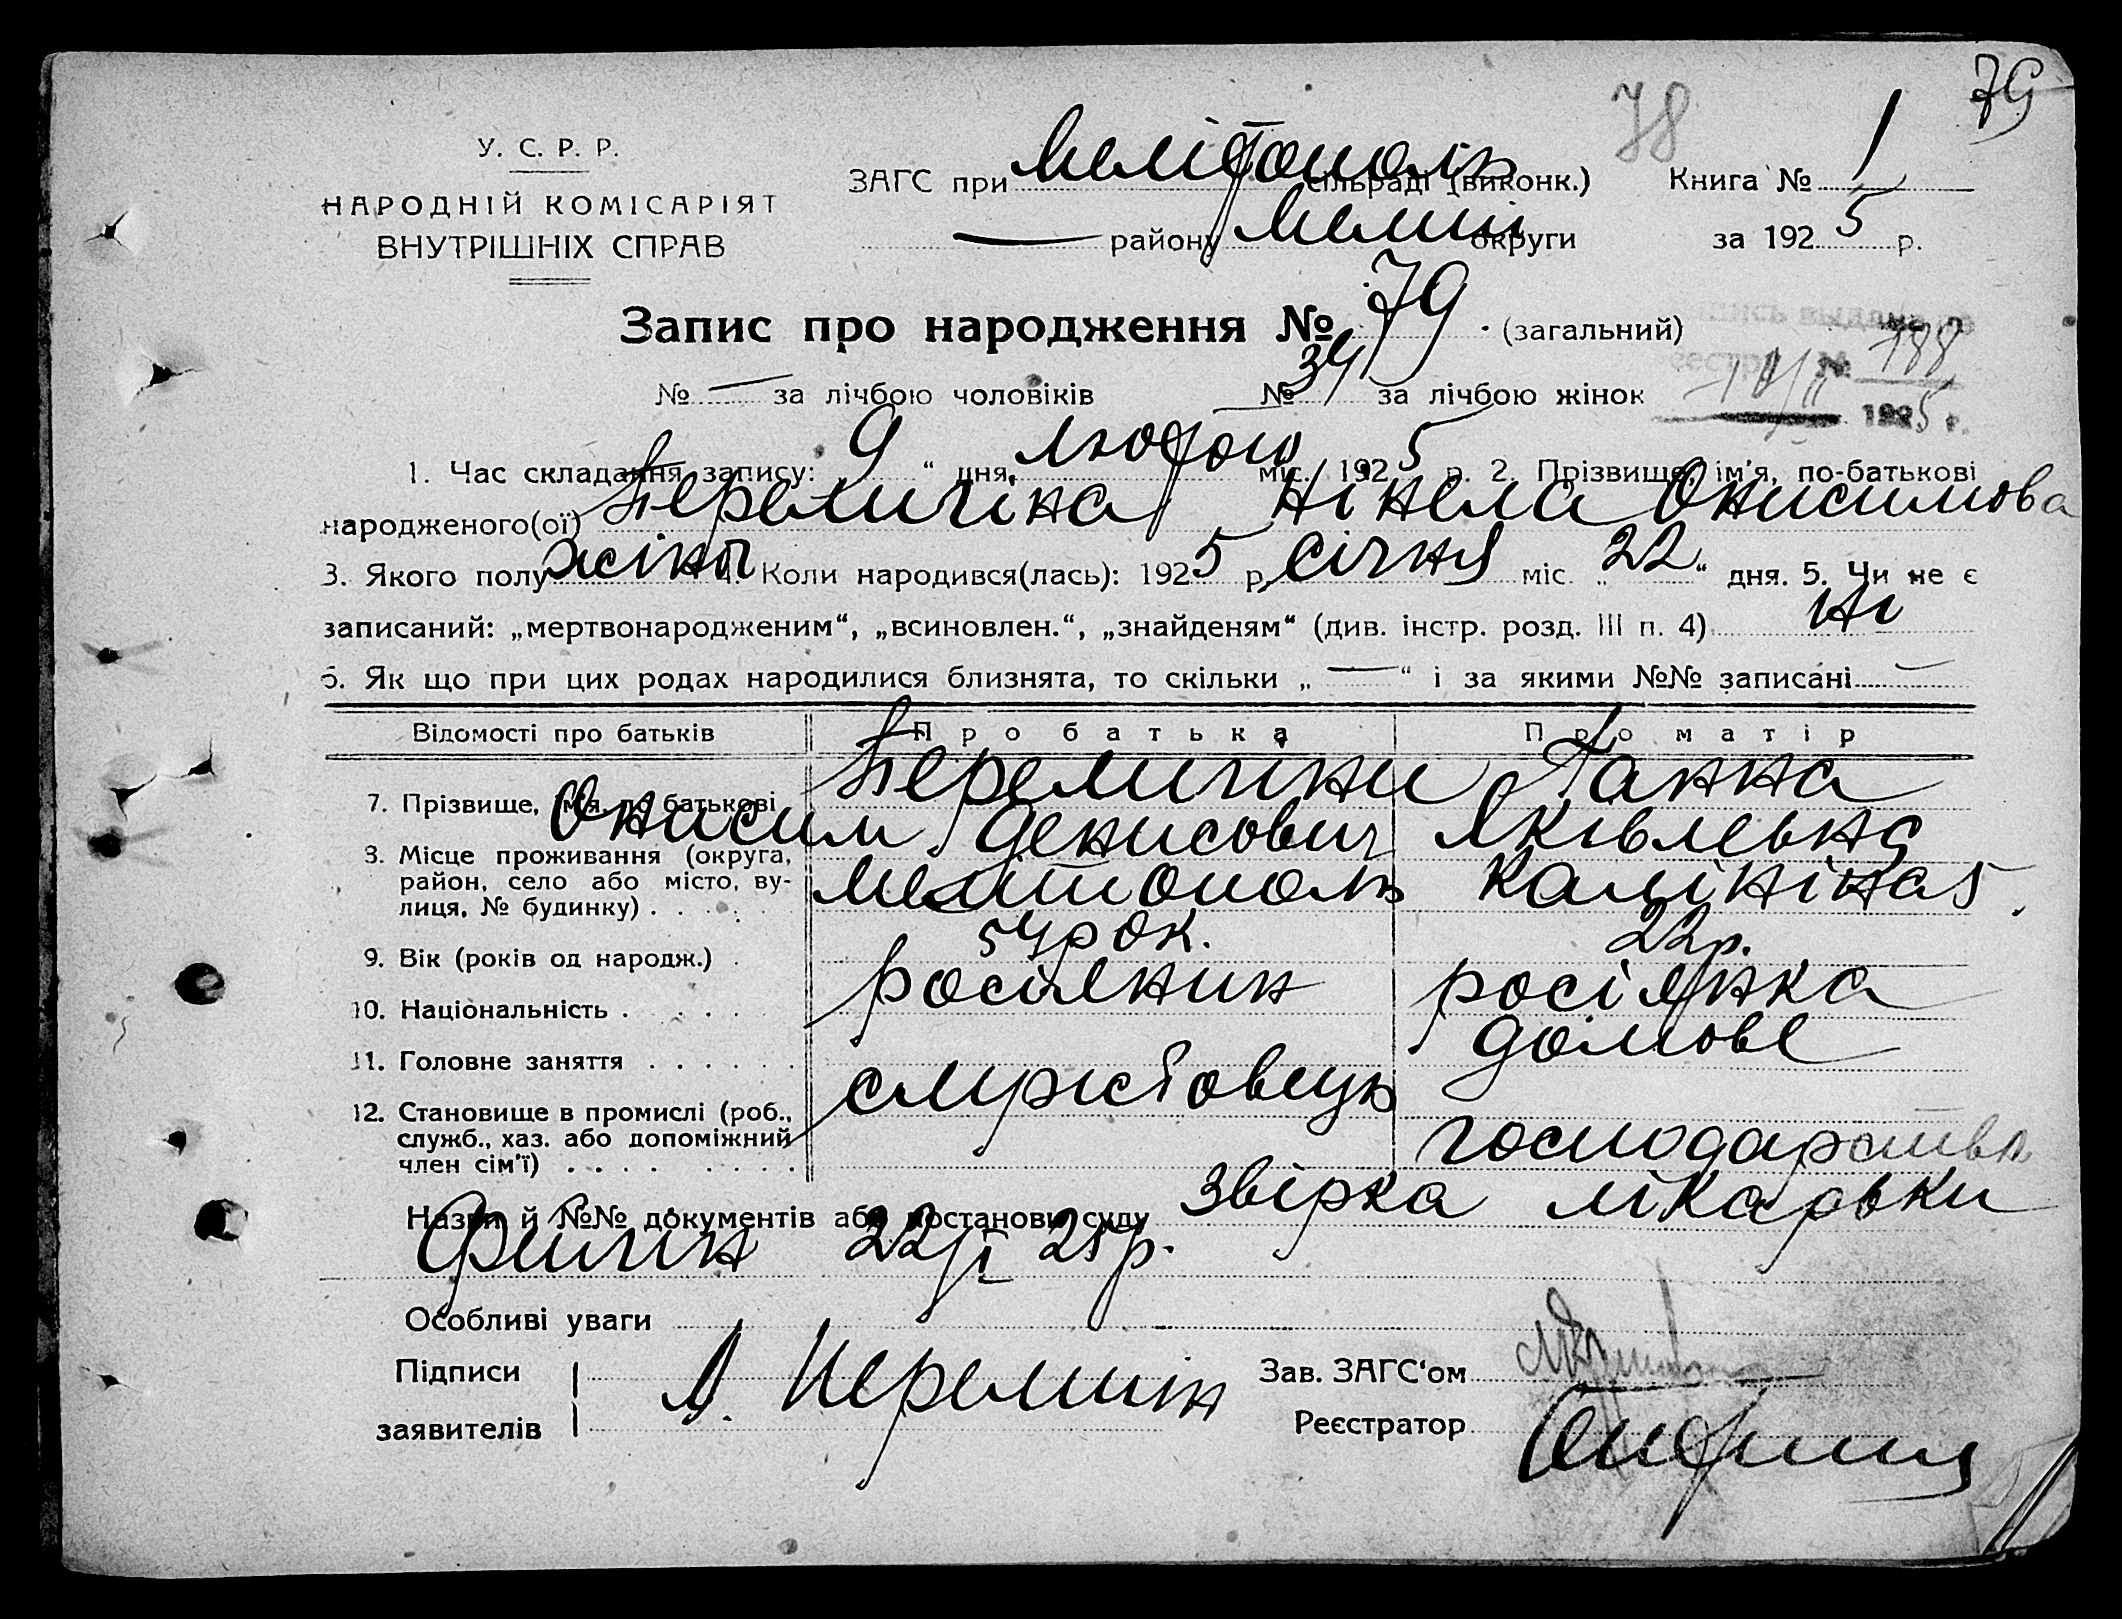 79
78
У. С. Р. Р.
НАРОДНІЙ КОМІСАРІЯТ
ВНУТРІШНІХ СПРАВ
ЗАГС при Мелітополь сільраді (виконк.) Книга № 1
— району Мелит округи за 1925 р.
Запис про народження № 79 (загальний)
№ — за лічбою чоловіків № 34 за лічбою жінок
188
1925 г.
1. Час складання запису: 9 “ дня лютого міс. 1925 р. 2. Прізвище, ім'я, по-батькові
народженого(ої) Перемигіна Нінела Онисимова
3. Якого полу жіноч 4. Коли народився(лась): 1925 р. січня міс. „ 22 “ дня. 5. Чи не є
записаний: „мертвонародженим“, „всиновлен.“, „знайденям“ (див. інстр. розд. III п. 4) ні
6. Як що при цих родах народилися близнята, то скільки „ — “ і за якими №№ записані —
Відомості про батьків Про батька Про матір
7. Прізвище, ім'я по батькові Перемигіни Ганна
Онисим Денисович Яківлевна
8. Місце проживання (округа,
район, село або місто, ву-
лиця, № будинку) . . . . Мелитополь Калініна 5.
9. Вік (років од народж.) . 54 рок. 22 р.
10. Національність . . . . . росіянин росіянка
11. Головне заняття . . . . . . домове
12. Становище в промислі (роб.,
служб., хаз. або допоміжний
член сім'ї) . . . . . . . . господарства
Назви й №№ документів або постанови суду звірка лікарьки
22/I 25 р.
Особливі уваги
Підписи
заявителів
Зав. ЗАГС‘ом
Реєстратор